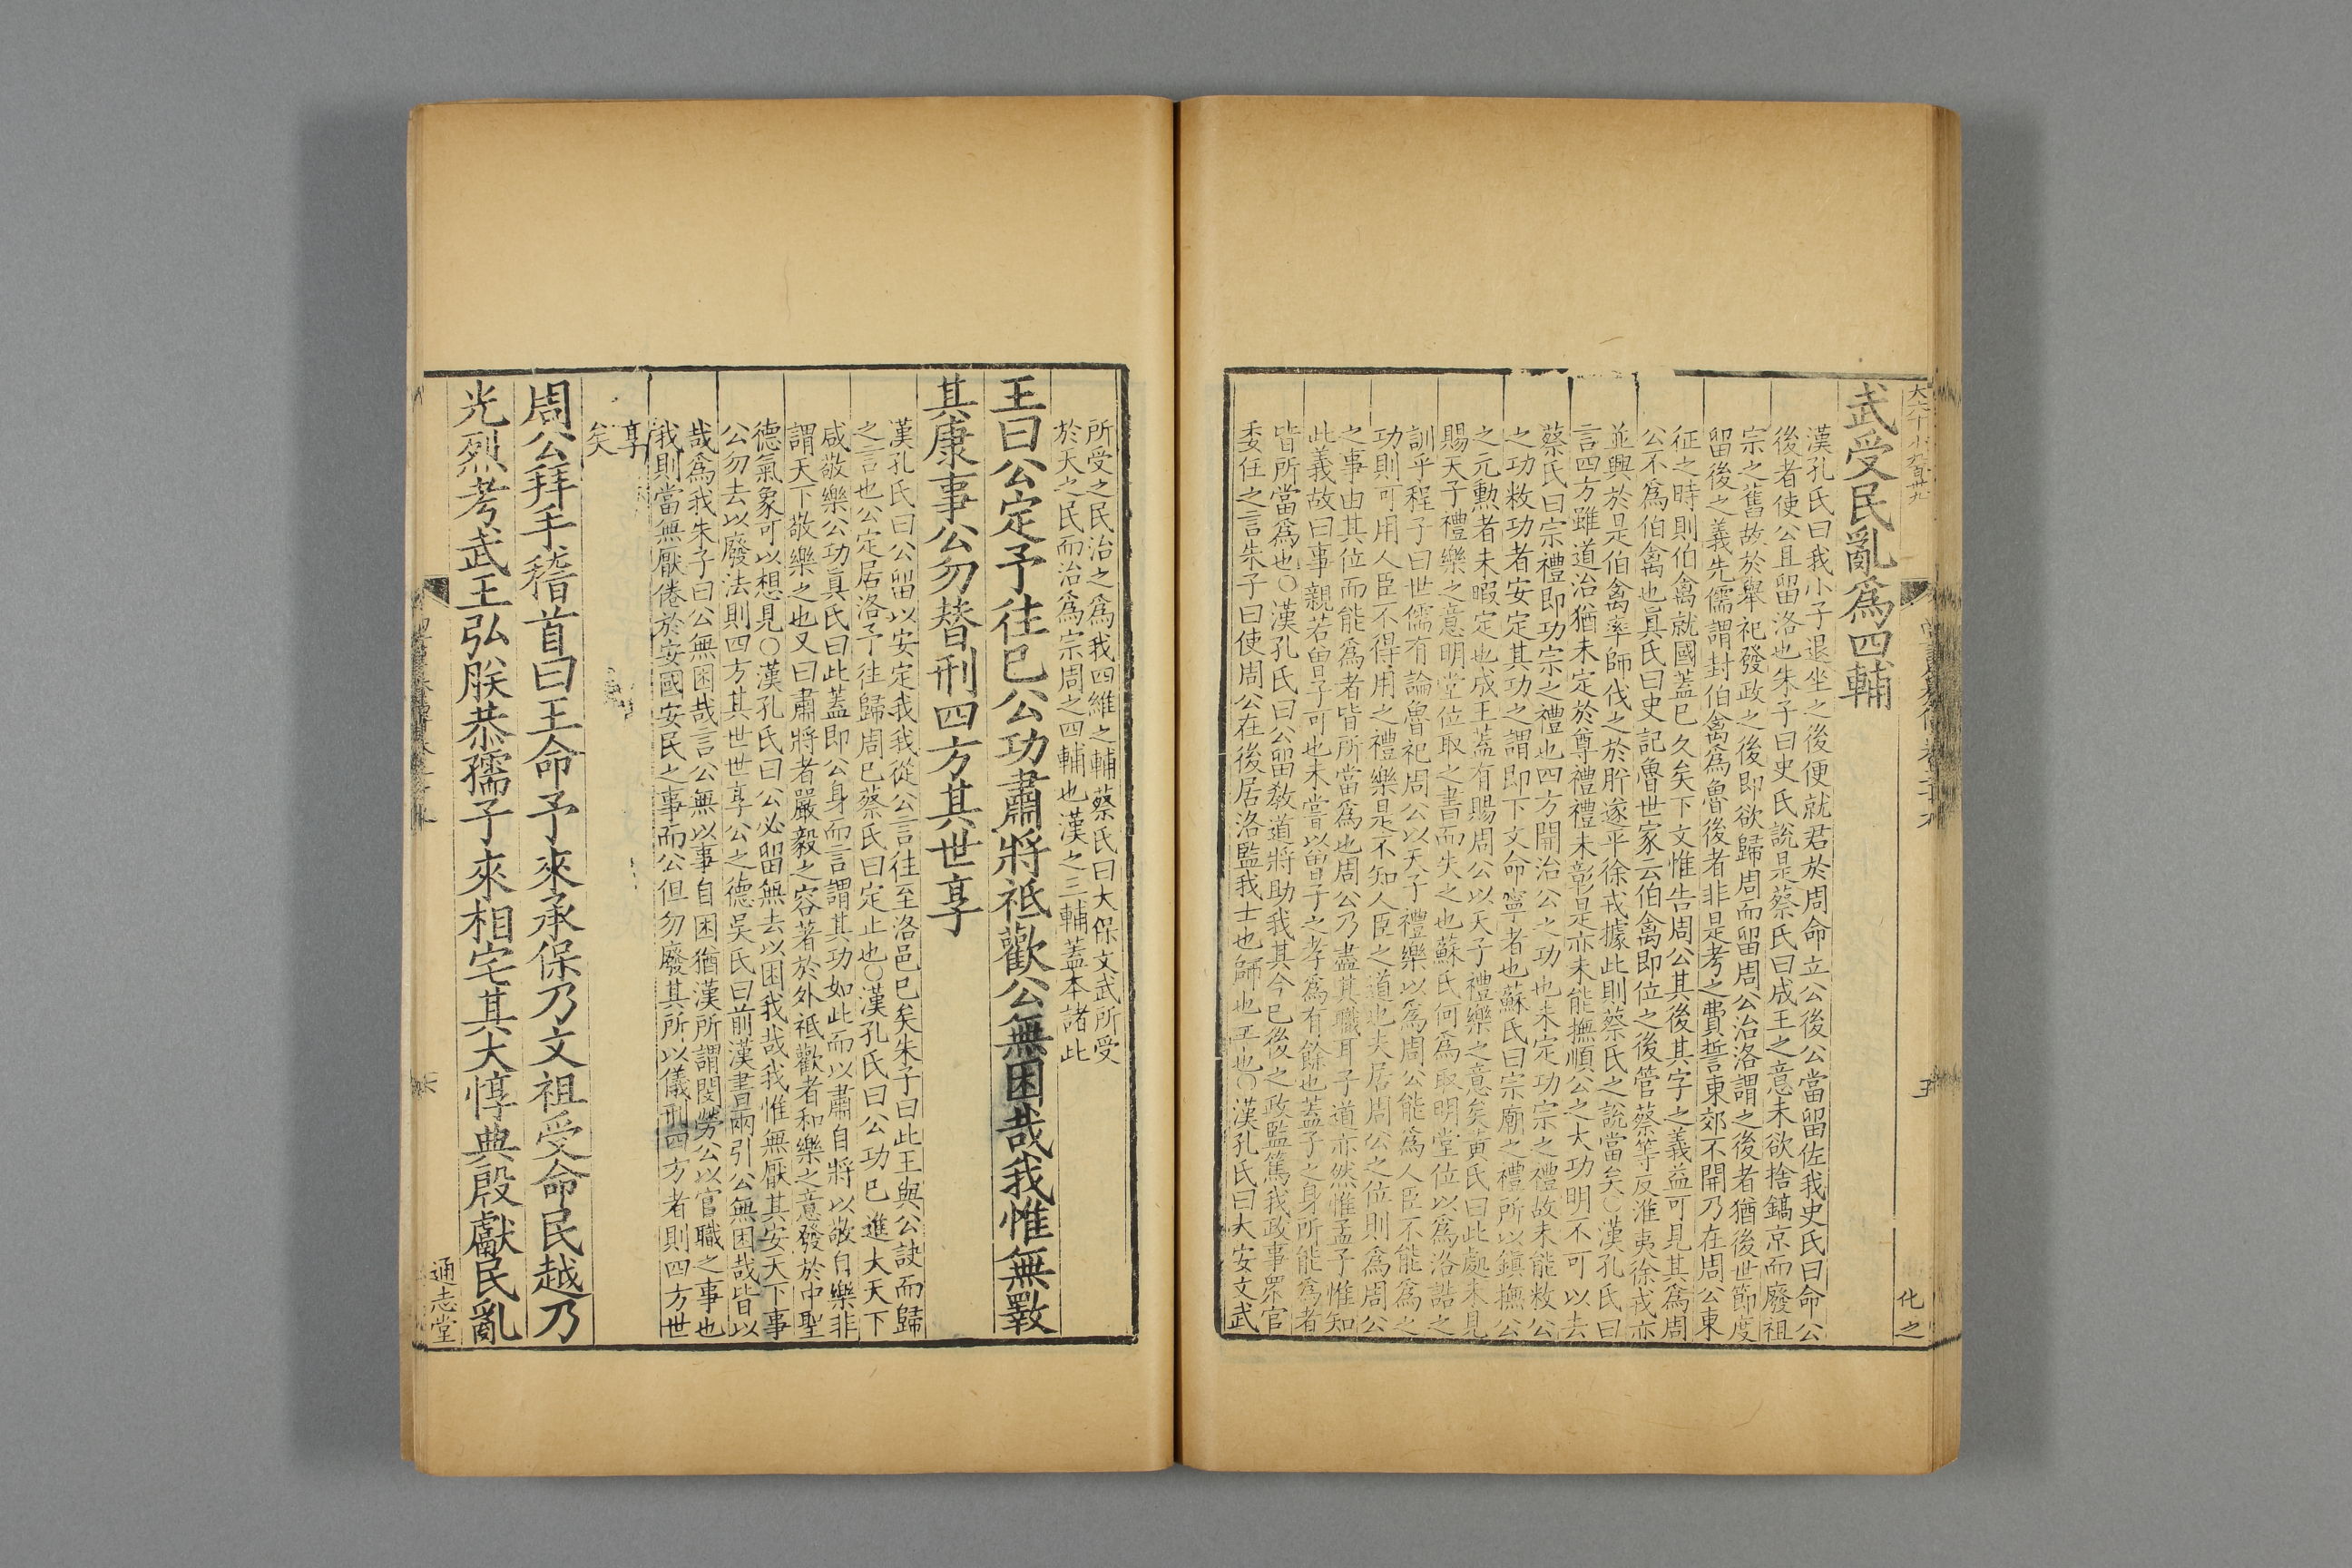 大六十小九百卅九
化之
武受民亂為四輔
漢孔氏曰我小子退坐之後便就君於周命立公後公當留佐我史氏曰命公
後者使公且留洛也朱子曰史氏說是蔡氏曰成王之意未欲捨鎬京而廢祖
宗之舊故於舉祀發政之後即欲歸周而留周公治洛謂之後者猶後世節度
留後之義先儒謂封伯禽為魯後者非是考之費誓東郊不開乃在周公東
征之時則伯禽就國蓋已久矣下文惟告周公其後其字之義益可見其為周
公不為伯禽也真氏曰史記魯世家云伯禽即位之後管蔡等反淮夷徐戎亦
並興於是伯禽率師伐之於肸遂平徐戎據此則蔡氏之說當矣○漢孔氏曰
言四方雖道治猶未定於尊禮禮未彰是亦未能撫順公之大功明不可以去
蔡氏曰宗禮即功宗之禮也四方開治公之功也未定功宗之禮故未能敉公
之功敉功者安定其功之謂即下文命寧者也蘇氏曰宗廟之禮所以鎮撫公
之元勲者未暇定也成王蓋有賜周公以天子禮樂之意矣黃氏曰此處未見
賜天子禮樂之意明堂位取之書而失之也蘇氏何為取明堂位以為洛誥之
訓乎程子曰世儒有論魯祀周公以天子禮樂以為周公能為人臣不能為之
功則可用人臣不得用之禮樂是不知人臣之道也夫居周公之位則為周公
之事由其位而能為者皆所當為也周公乃盡其職耳子道亦然惟孟子惟知
此義故曰事親若曾子可也未嘗以曾子之孝為有餘也蓋子之身所能為者
皆所當為也○漢孔氏曰公留教道將助我其今已後之政監篤我政事衆官
委任之言朱子曰使周公在後居洛監我士也師也工也○漢孔氏曰大安文武
所受之民治之為我四維之輔蔡氏曰大保文武所受
於天之民而治為宗周之四輔也漢之三輔蓋本諸此
王曰公定予往已公功肅將祗歡公無困哉我惟無斁
其康事公勿替刑四方其世享
漢孔氏曰公留以安定我我從公言往至洛邑已矣朱子曰此王與公訣而歸
之言也公定居洛予往歸周已蔡氏曰定止也○漢孔氏曰公功已進大天下
咸敬樂公功真氏曰此蓋即公身而言謂其功如此而以肅自將以敬自樂非
謂天下敬樂之也又曰肅將者嚴毅之容著於外祗歡者和樂之意發於中聖
德氣象可以想見○漢孔氏曰公必留無去以困我哉我惟無厭其安天下事
公勿去以廢法則四方其世世享公之德吳氏曰前漢書兩引公無困哉皆以
哉為我朱子曰公無困哉言公無以事自困猶漢所謂閔勞公以官職之事也
我則當無厭倦於安國安民之事而公但勿廢其所以儀刑四方者則四方世
享
矣
周公拜手稽首曰王命予來承保乃文祖受命民越乃
光烈考武王弘朕恭孺子來相宅其大惇典殷獻民亂
通志堂